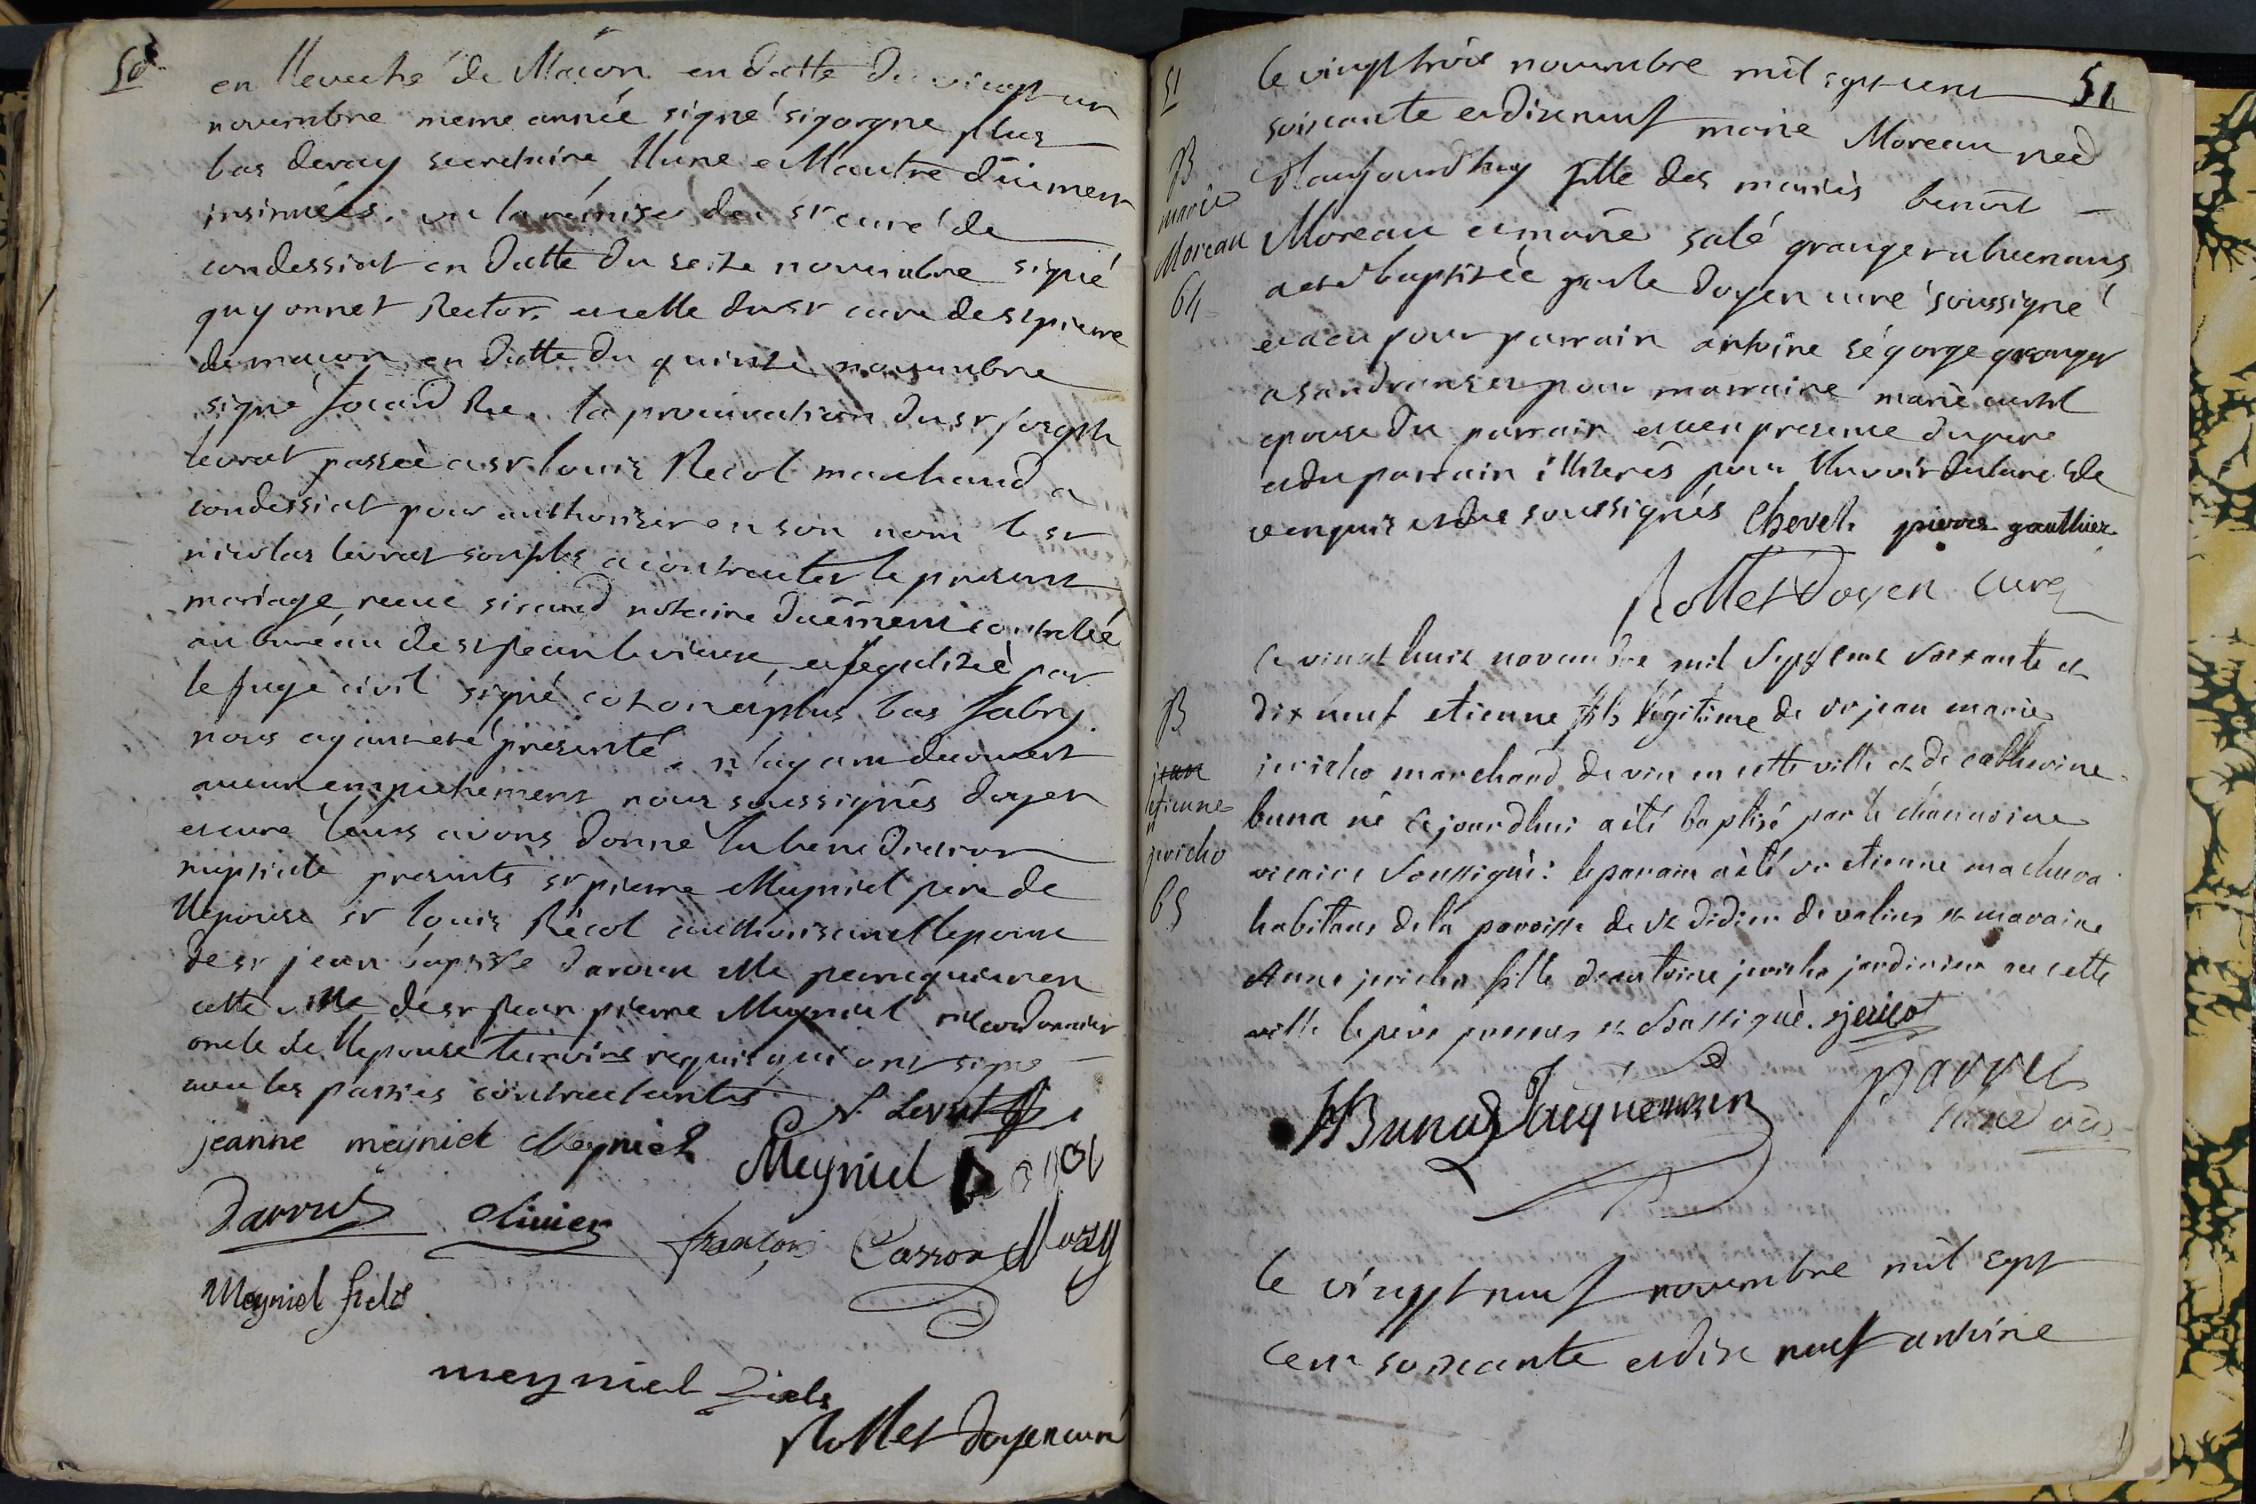 50
en l'eveché de Mâcon en datte du vingt un
novembre meme année signé sigorgne plus
bas deray secretaire, l'une et l'autre düement
insinuées. vu la remise du sr curé de
condessiat en datte du seize novembre signé
guyonnet Rector. et celle du sr curé de st pierre
de macon en datte du quinze novembre
signé focard Re. la procuration du sr joseph
levrat passée a sr louis Recol marchand a
condessiat pour authoriser en son nom le sr
nicolas levrat son fils a contracter le present
mariage, recue sirand notaire düement contrôlé
au bureau de st jean le vieux, et legalizée par
le juge civil signé et plus bas fabry.
nous ayant eté presenté. n'ayant decouvert
aucun empechement nous soussignés doyen
et curé leurs avons donné la benediction
nuptiale presents sr pierre Meyniel pere de
l'epouse sr louis Récol authorisant l'epoux
de sr jean baptiste daroux Me perruquier en
cette ville de sr jean pierre Meyniel me cordonnier
oncle de l'epouse temoins requis qui ont signé
avec les parties contractantes N. Levrat
jeanne meyniel Meyniel Meyniel Recol
Darrut olivier françois Casson Mozy
Meyniel fiels
meyniel fiels
Rollet doyen curé
51
51
le vingt trois novembre mil sept cent
soixante et dix neuf marie Moreau née
d'aujourdhuy fille des mariés benoit
Moreau et marie salé granger a lucenans
a eté baptisée par le doyen curé soussigné
et a eu pour parrain antoine ségorge granger
a sandrans et pour marraine marie
epouse du parrain et a en presence du pere
et du parrain illiterés pour l'avoir declaré de
ce enquis et des soussignés Chevel. pierre gauthier
Rollet Doyen curé
B
marie
Moreau
64
ce vingt huit novembre mil sept cent soixante et
dix neuf etienne fils légitime de sr jean marie
jericho marchand de vin en cette ville et de catherine
buna né ce jourdhui a été baptisé par le chanoine
vicaire soussigné: le parain a été sr etienne machura
habitans de la paroisse de st didier de valins et maraine
Anne jericho fille d'antoine jericho jardinier en cette
ville le pere present et soussigné. jericot
B
jean
etienne
jericho
65
Buna Jacquemin
le vingt neuf novembre mil sept
cent soixante et dix neuf antoine